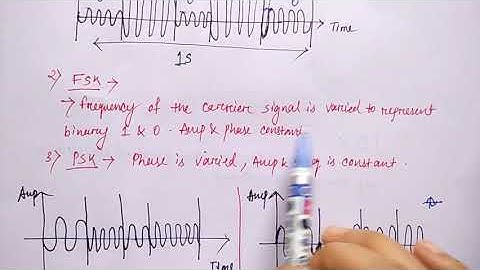 Time
1S
2) FSK →
→ frequency of the carrier signal is varied to represent
binary 1 & 0 . Amp & phase constant
3) PSK → Phase is varied, Amp & is constant .
Amp
Amp
Time